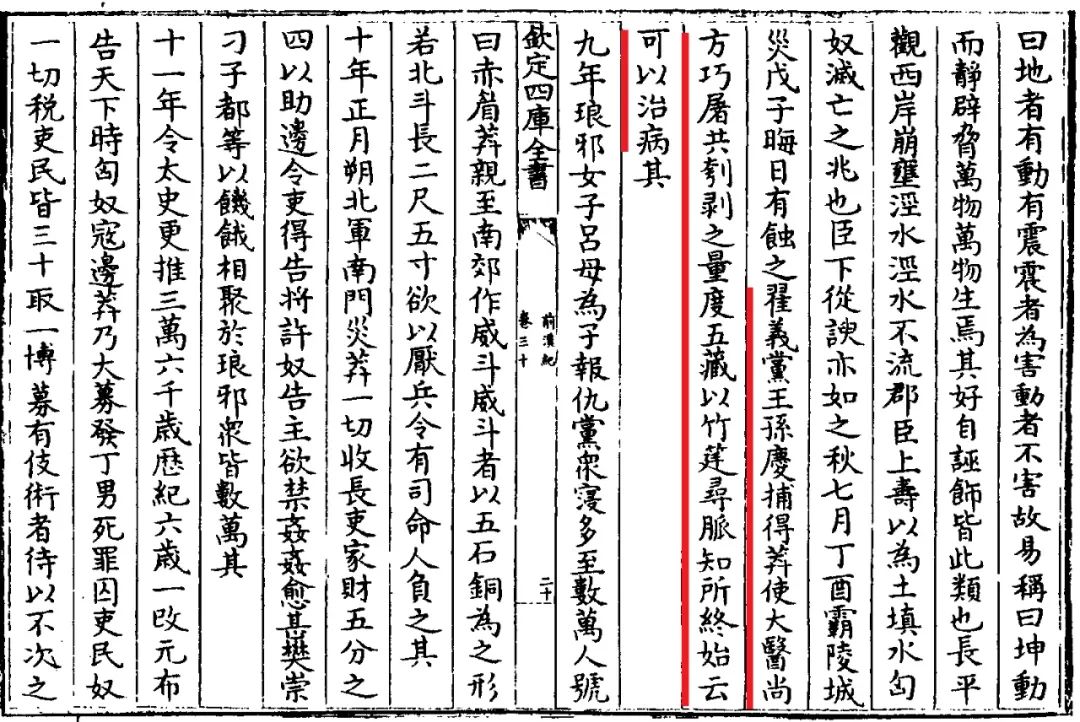 曰地者有動有震震者為害動者不害故易稱曰坤動
而靜辟脅萬物萬物生焉其好自誣飾皆此類也長平
觀西岸崩壅涇水涇水不流郡臣上壽以為土填水匈
奴滅亡之兆也臣下從諛亦如之秋七月丁酉霸陵城
災戊子晦日有蝕之翟義黨王孫慶捕得莽使大醫尚
方巧屠共刳剥之量度五藏以竹筳尋脈知所終始云
可以治病其
九年琅邪女子呂母為子報仇黨衆寖多至數萬人號
欽定四庫全書
前漢紀
卷三十
二十
曰赤眉莽親至南郊作威斗威斗者以五石銅為之形
若北斗長二尺五寸欲以厭兵令有司命人負之其
十年正月朔北軍南門災莽一切收長吏家財五分之
四以助邊令吏得告將許奴告主欲禁姦姦愈甚樊崇
刁子都等以饑餓相聚於琅邪衆皆數萬其
十一年令太史更推三萬六千歲歷紀六歲一改元布
告天下時匈奴寇邊莽乃大募發丁男死罪囚吏民奴
一切稅吏民皆三十取一博募有伎術者待以不次之